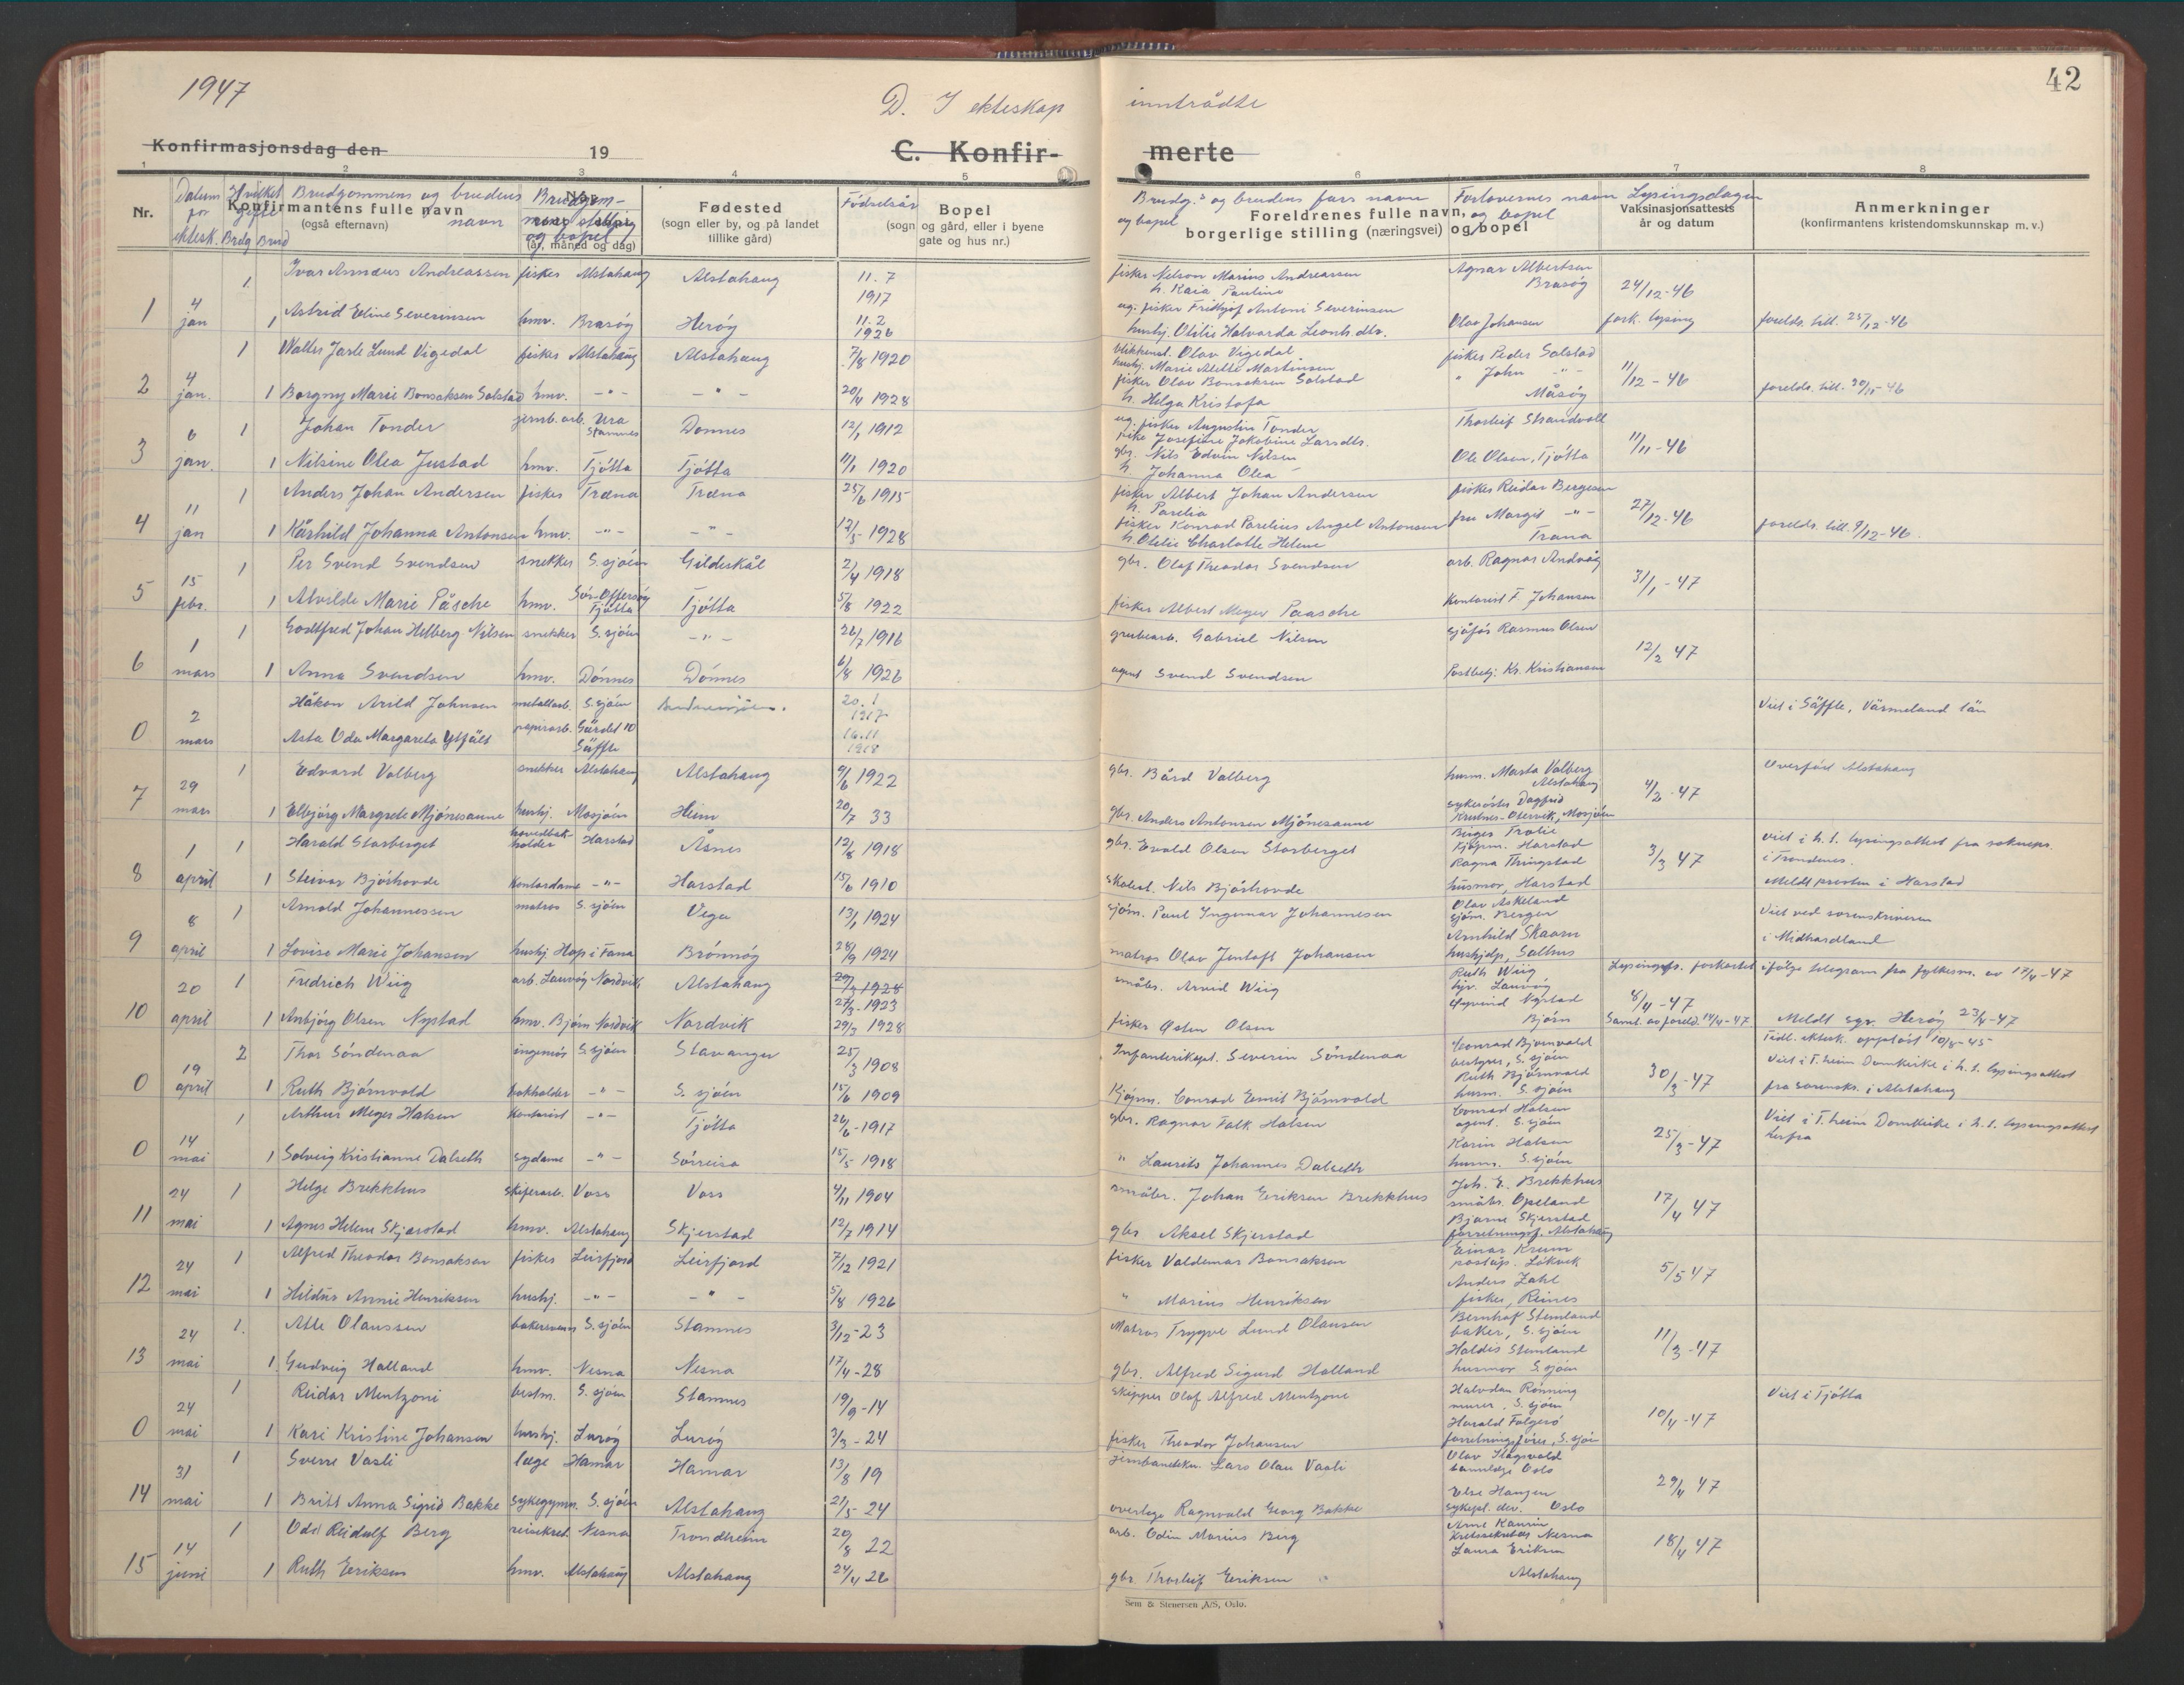 1947
D. I ekteskap inntrådte
42
Konfirmasjonsdag den 19
C. Konfirmerte
1 2 3 4 5 6 7 8
Nr.
Datum for ektesk.
Hvilket gifte Brudg Brud
Brudgommens og brudens navn
Konfirmantens fulle navn
(også efternavn)
og bopel
(år, måned og dag)
Fødested
(sogn eller by, og på landet tillike gård)
Fødselsår
Bopel
(sogn og gård, eller i byene gate og hus nr.)
Brudg.s og brudens fars navn og bopel
Foreldrenes fulle navn,
borgerlige stilling (næringsvei) og bopel
Forlovernes navn og bopel
Lysingsdagen
Vaksinasjonsattests år og datum
Anmerkninger
(konfirmantens kristendomskunnskap m. v.)
1 Ivar Annæus Andreassen fisker Alstahaug Alstahaug 11.7 1917 fisker Nelson Marius Andreassen h. Kaia Pauline Agnar Albertsen Brasøy 24/12-46
1 4 jan 1 Astrid Eline Severinsen hmv. Brasøy Herøy 11.2 1926 ug. fisker Fridtjof Antoni Severinsen hushj. Otilie Halvarda Leonh.dtr. Olav Johansen fork. lysing forelds. till. 23/12-46
1 Walter Jarle Lund Vigedal fisker Alstahaug Alstahaug 7/8 1920 blikkensl. Olav Vigedal hushj. Marie Martinsen fisker Peder Solstad
2 4 jan. 1 Borgny Marie Bonsaksen Solstad hmv. -"- -"- 20/4 1928 fisker Olav Bonsaksen Solstad h. Helga Kristofa " John -"- Måsøy 11/12-46 forelds. till.
1 Johan Tonder jernb.arb. Ura Stamnes Dønnes 12/1 1912 ug. fisker Augustin Tonder pike Josefine Jakobine Larsdtr. Thorleif Strandvoll
3 6 jan. 1 Nilsine Olea Justad hmv. Tjøtta Tjøtta 11/1 1920 gbr. Nils Edvin Nilsen h. Johanna Olea Ole Olsen, Tjøtta 11/11-46
1 Anders Johan Andersen fisker Træna Træna 25/6 1915 fisker Albert Johan Andersen h. Parelia fisker Reidar Bergesen
4 11 jan 1 Kårhild Johanna Antonsen hmv. -"- -"- 12/5 1928 fisker Konrad Parelius Angel Antonsen h. Otelie Charlotte Helene fru Margit -"- Træna 27/12-46 forelds. till. 9/12-46.
1 Per Svend Svendsen snekker S.sjøen Gildeskål 2/4 1918 gbr. Olaf Theodor Svendsen arb. Ragnar Andvåg
5 15 febr. 1 Alvilde Marie Påsche hmv. Sør-Offersøy Tjøtta Tjøtta 5/8 1922 fisker Albert Meyer Paasche Kontorist F Johansen 31/1-47
1 Godtfred Johan Helberg Nilsen snekker S.sjøen -"- 26/7 1916 grubearb. Gabriel Nilsen Sjåfør Rasmus Olsen
6 1 mars 1 Anna Svendsen hmv. Dønnes Dønnes 6/8 1926 agent Svend Svendsen Postbetj. Kr. Kristiansen 12/2 47
Håkon Arild Johnsen metallarb. S.sjøen 20.1 1917 Viet i Säffle, Värmeland län
0 2 mars Asta Oda Margareta Ytfält papirarb. Säffle 16.11 1918
1 Edvard Valberg snekker Alstahaug Alstahaug 9/6 1922 gbr. Bård Valberg husm. Marta Valberg Alstahaug Overført Alstahaug
7 29 mars 1 Elbjørg Margrete Mjønesaune hushj. Mosjøen Heim 20/7 33 gbr. Anders Antonsen Mjønesaune sykesøster Dagfrid Mosjøen 4/2-47
1 Harald Storberget hovedbokholder Harstad Åsnes 12/8 1918 gbr. Evald Olsen Storberget Birger Trolie Kjøpm. Harstad viet i h. t. lysingsattest fra sokneprs. i Trondenes.
8 1 april 1 Steivor Bjørhovde Kontordame -"- Harstad 15/6 1910 skolest. Nils Bjørhovde Ragna Thingstad husmor, Harstad 3/3 47 Meldt presten i Harstad
1 Arnold Johannessen matros S.sjøen Vega 13/1 1924 sjøm. Paul Ingemar Johannesen Olav Askeland sjøm. Bergen Viet ved sorenskriveren
9 8 april 1 Lovise Marie Johansen hushj Hop i Fana Brønnøy 28/9 1924 matros Olav Jentoft Johansen Arnhild Skaarn hushjelp, Salhus i Midhordland
1 Fredrich Wiig arb. Lauvøy Nordvik Alstahaug 27/3-1923 småbr. Arvid Wiig Ruth Wiig Lauvøy Lysingsfr. forkortet ifølge telegram fra fylkesm. av 17/4-47
10 20 april 1 Anbjørg Olsen Nystad hmv. Bjørn Nordvik Nordvik 29/3 1928 fisker Østen Olsen Øyvind Nystad Bjørn 8/4-47 Saml. av foreld. 14/4-47 Meldt spr. Herøy 23/4-47
2 Thor Søndenaa ingeniør S.sjøen Stavanger 25/3 1908 Infanterikapt. Severin Søndenaa Conrad Bjørnvold S.sjøen Tidl. ektesk. oppløst 10/8-45
0 19 april 1 Ruth Bjørnvold bokholder -"- S. sjøen 15/6 1909 Kjøpm. Conrad Emil Bjørnvold Ruth Bjørnvold husm. S. sjøen 30/3-47 Viet i T.heim Domkirke i h. t. lysingsattest fra sorensk. i Alstahaug
1 Arthur Meyer Halsen Kontorist -"- Tjøtta 26/6-1917 gbr. Ragnar Falk Halsen Conrad Halsen agent. S.sjøen Viet i T.heim Domkirke i h. t. lysingsattest herfra
0 14 mai 1 Solveig Kristianne Dalseth sydame -"- Sørreisa 15/5 1918 " Laurits Johannes Dalseth Karin Halsen husm. S.sjøen 25/3-47
1 Helge Brekkhus skiferarb. Voss Voss 4/11 1904 småbr. Johan Eriksen Brekkhus Joh. E. Brekkhus småbr. Opeland
11 24 mai 1 Agnes Helene Skjerstad hmv. Alstahaug Skjerstad 12/7 1914 gbr Aksel Skjerstad Bjarne Skjerstad forretningsf. Alstahaug 17/4 47
1 Alfred Theodor Bonsaksen fisker Leirfjord Leirfjord 7/12 1921 fisker Valdemar Bonsaksen Einar Krum poståp. Løkvik
12 24 mai 1 Hildur Annie Henriksen hushj. -"- -"- 5/8 1926 " Marius Henriksen Anders Zahl fisker, Reines 5/5 47
1. Atle Olaussen bakersvenn S.sjøen Stamnes 3/12-23 Matros Trygve Lund Olausen Bernhof Stemland baker, S.sjøen
13 24 mai 1. Gudveig Halland hmv. Nesna Nesna 17/4-28 gbr. Alfred Sigurd Halland Haldis Stemland husmor S.sjøen 11/3-47
1 Reidar Mentzoni bestm. S.sjøen Stamnes 19/9-14 Skipper Olaf Alfred Mentzoni Halvdan Rønning murer, S.sjøen Viet i Tjøtta
0 24 mai 1 Kari Kristine Johansen hushj. Lurøy Lurøy 3/3-24 fisker Theodor Johansen Harald Falgerø forretningsfører, S.sjøen 10/4-47
1 Sverre Vasli lege Hamar Hamar 13/8 19 jernbaneekn. Lars Olau Vasli Olav Oslo
14 31 mai 1 Britt Anna Sigrid Bakke Sykegymn. S.sjøen Alstahaug 21/5-24 overlege Ragnvald Georg Bakke Else Haugen sykepl. elev. Oslo 29/4 47
1 Odd Reidulf Berg reisekred. Nesna Trondheim 20/8 22 arb. Odin Marius Berg Arne Kaurin Kretssekretær Nesna
15 14 juni 1 Ruth Eriksen hmv. Alstahaug Alstahaug 24/4 26 gbr. Thorleif Eriksen Laura Eriksen Alstahaug 18/4 47
Sem & Stenersen A/S, Oslo.